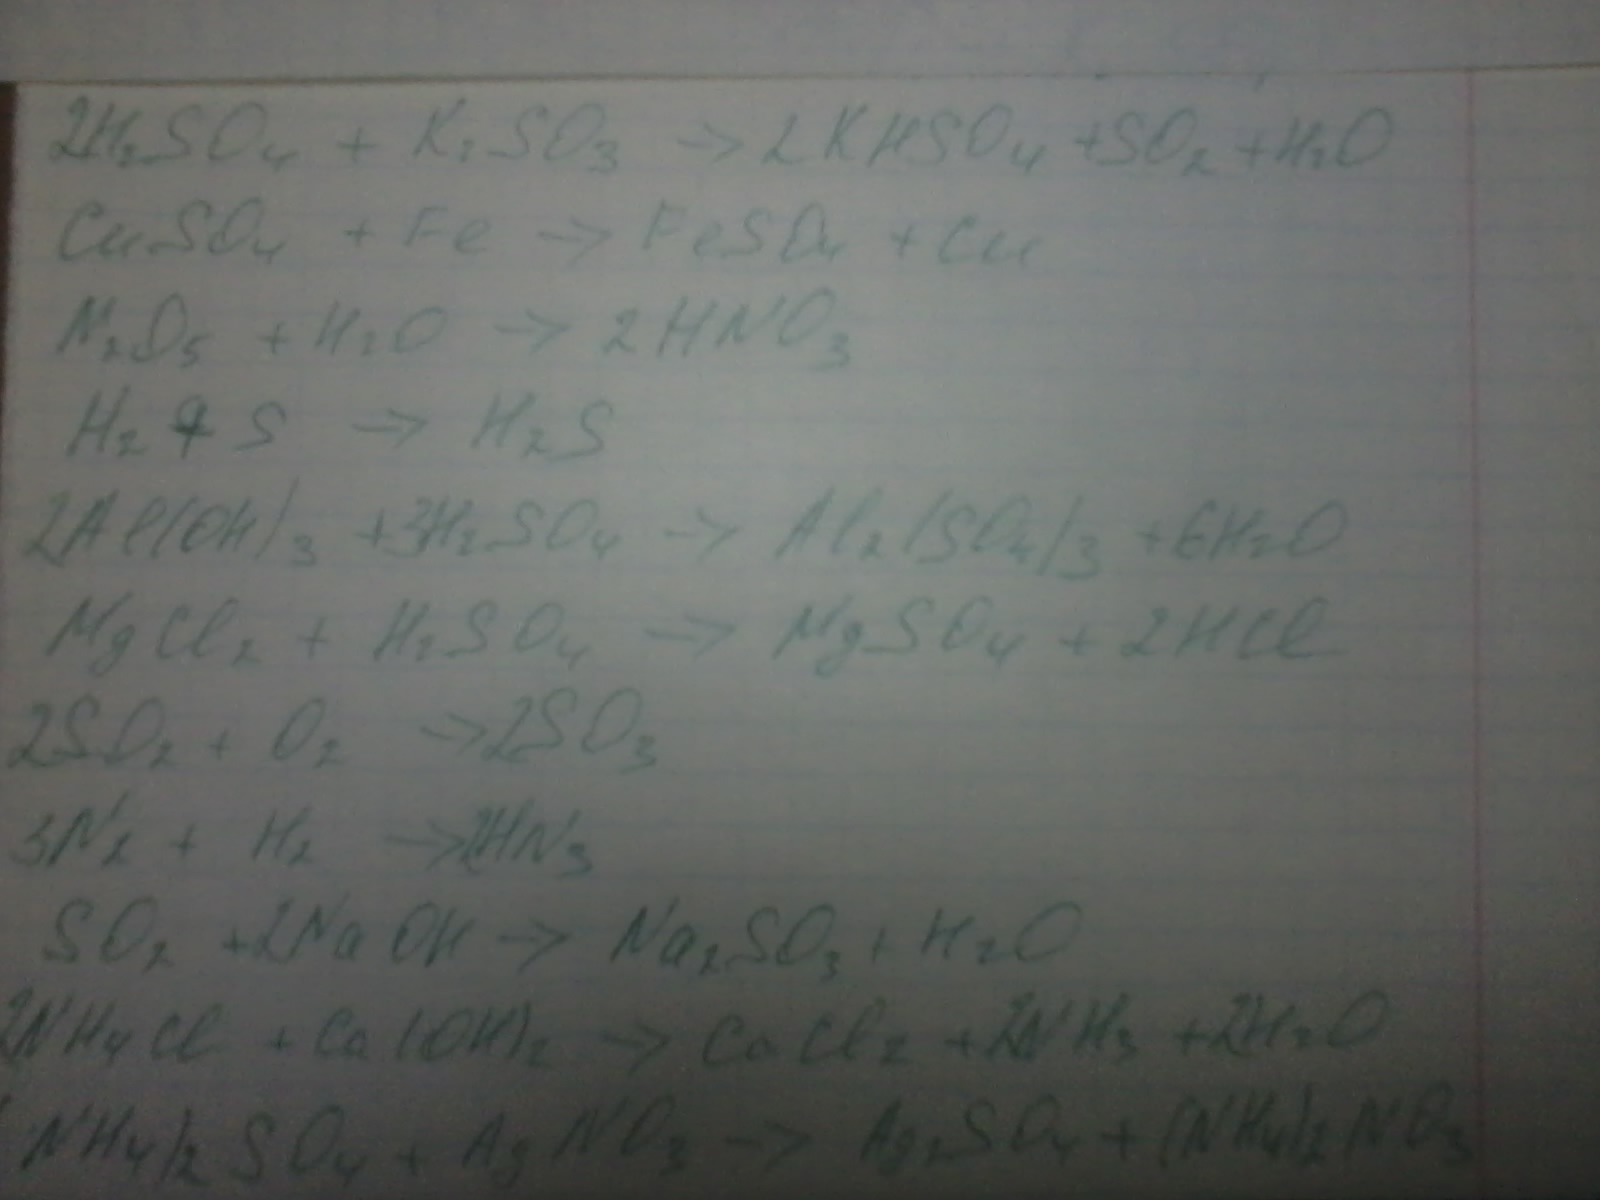 2H₂SO₄ + K₂SO₃ → 2KHSO₄ + SO₂ + H₂O
CuSO₄ + Fe → FeSO₄ + Cu
N₂O₅ + H₂O → 2HNO₃
H₂ + S → H₂S
2Al(OH)₃ + 3H₂SO₄ → Al₂(SO₄)₃ + 6H₂O
MgCl₂ + H₂SO₄ → MgSO₄ + 2HCl
2SO₂ + O₂ → 2SO₃
3N₂ + H₂ → 2HN₃
SO₂ + 2NaOH → Na₂SO₃ + H₂O
2NH₄Cl + Ca(OH)₂ → CaCl₂ + 2NH₃ + 2H₂O
(NH₄)₂SO₄ + AgNO₃ → Ag₂SO₄ + (NH₄)₂NO₃